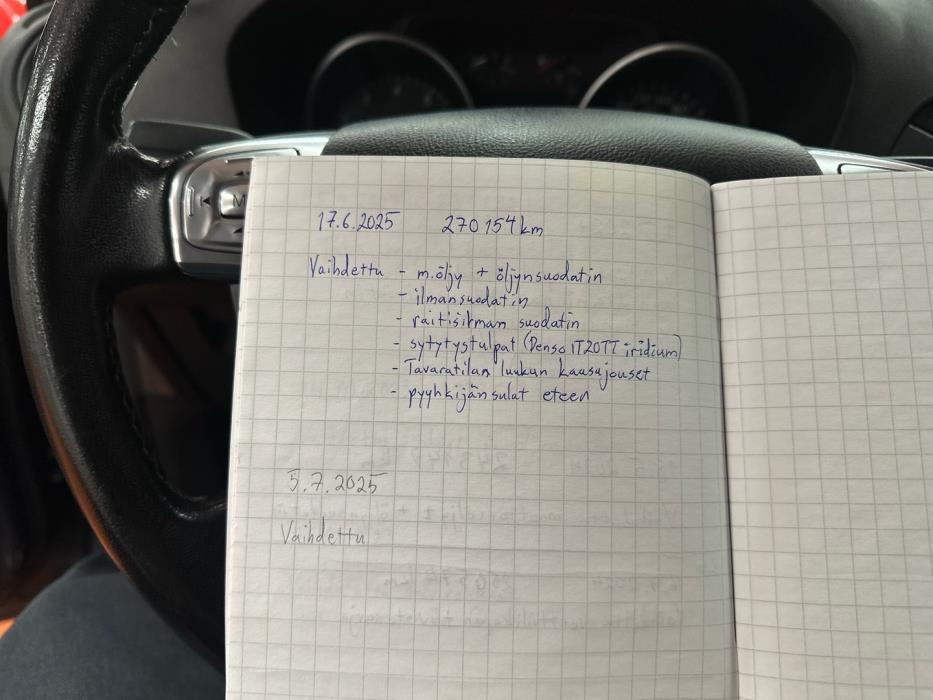 17.6.2025 270 154 km
Vaihdettu - m.öljy + öljynsuodatin
- ilmansuodatin
- raitisilman suodatin
- sytytystulpat (Denso IT20TT iridium)
- Tavaratilan luukun kaasujouset
- pyyhkijän sulat eteen
5.7.2025
Vaihdettu